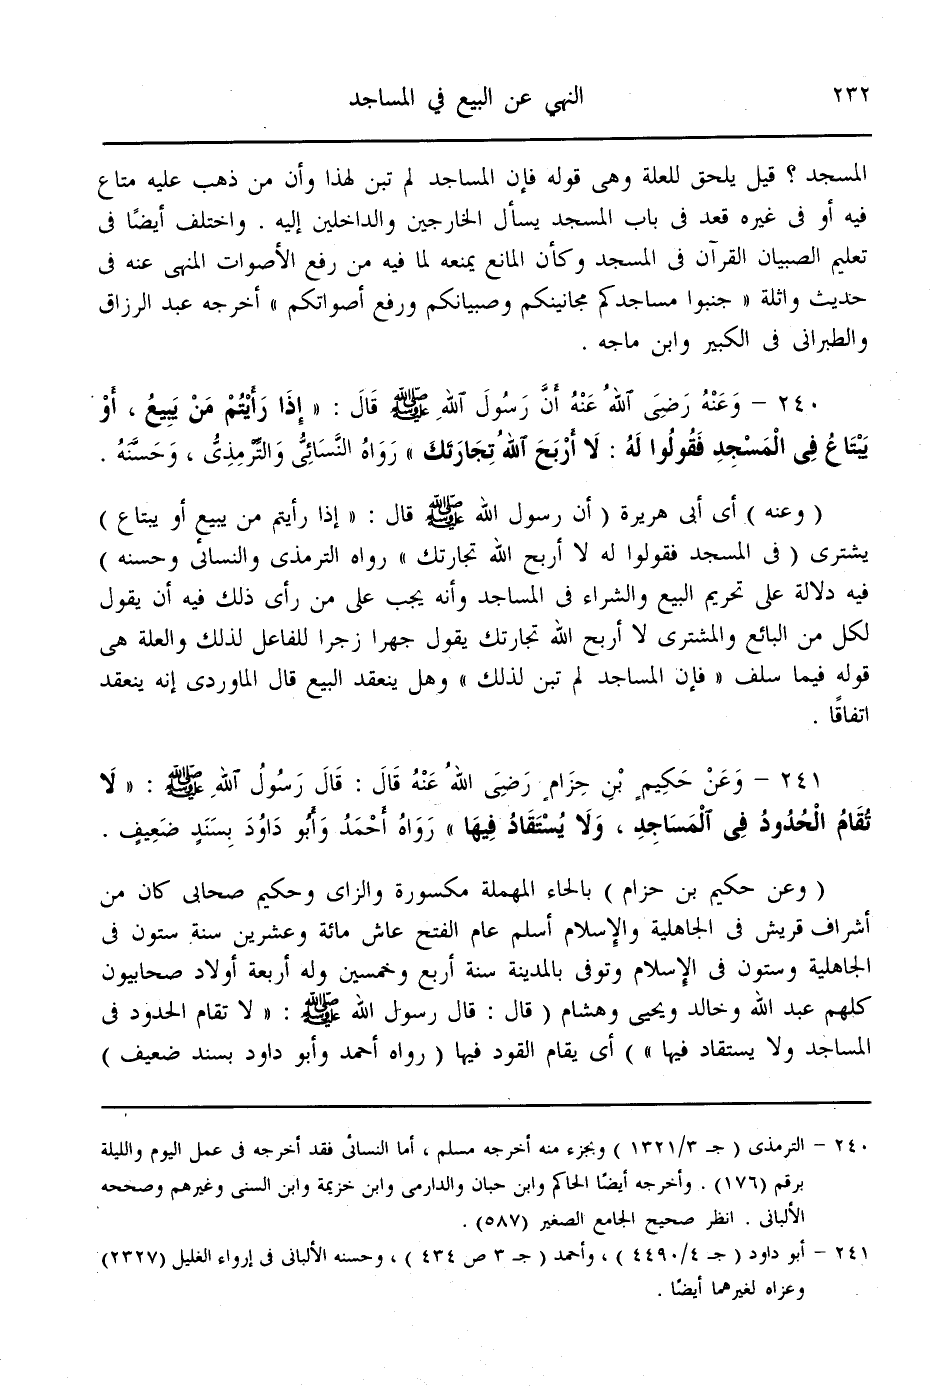 ٢٣٢
النهي عن البيع في المساجد
المسجد ؟ قيل يلحق للعلة وهى قوله فإن المساجد لم تبن لهذا وأن من ذهب عليه متاع
فيه أو فى غيره قعد فى باب المسجد يسأل الخارجين والداخلين إليه . واختلف أيضًا فى
تعليم الصبيان القرآن فى المسجد وكأن المانع يمنعه لما فيه من رفع الأصوات المنهى عنه فى
حديث واثلة « جنبوا مساجدكم مجانينكم وصبيانكم ورفع أصواتكم » أخرجه عبد الرزاق
والطبرانى فى الكبير وابن ماجه .
٢٤٠ – وَعَنْهُ رَضِىَ ٱللهُ عَنْهُ أَنَّ رَسُولَ ٱللهِ ﷺ قَالَ : « إِذَا رَأَيْتُمْ مَنْ يَبِيعُ ، أَوْ
يَبْتَاعُ فِى الْمَسْجِدِ فَقُولُوا لَهُ : لَا أَرْبَحَ ٱللهُ تِجَارَتَكَ » رَوَاهُ النَّسَائِىُّ وَالتِّرْمِذِىُّ ، وَحَسَّنَهُ .
( وعنه ) أى أبى هريرة ( أن رسول الله ﷺ قال : « إذا رأيتم من يبيع أو يبتاع )
يشترى ( فى المسجد فقولوا له لا أربح الله تجارتك » رواه الترمذى والنسائى وحسنه )
فيه دلالة على تحريم البيع والشراء فى المساجد وأنه يجب على من رأى ذلك فيه أن يقول
لكل من البائع والمشترى لا أربح الله تجارتك يقول جهرا زجرا للفاعل لذلك والعلة هى
قوله فيما سلف « فإن المساجد لم تبن لذلك » وهل ينعقد البيع قال الماوردى إنه ينعقد
اتفاقًا .
٢٤١ – وَعَنْ حَكِيمِ بْنِ حِزَامٍ رَضِىَ ٱللهُ عَنْهُ قَالَ : قَالَ رَسُولُ ٱللهِ ﷺ : « لَا
تُقَامُ الْحُدُودُ فِى ٱلْمَسَاجِدِ ، وَلَا يُسْتَقَادُ فِيهَا » رَوَاهُ أَحْمَدُ وَأَبُو دَاوُدَ بِسَنَدٍ ضَعِيفٍ .
( وعن حكيم بن حزام ) بالحاء المهملة مكسورة والزاى وحكيم صحابى كان من
أشراف قريش فى الجاهلية والإسلام أسلم عام الفتح عاش مائة وعشرين سنة ستون فى
الجاهلية وستون فى الإسلام وتوفى بالمدينة سنة أربع وخمسين وله أربعة أولاد صحابيون
كلهم عبد الله وخالد ويحيى وهشام ( قال : قال رسول الله ﷺ : « لا تقام الحدود فى
المساجد ولا يستقاد فيها » ) أى يقام القود فيها ( رواه أحمد وأبو داود بسند ضعيف )
٢٤٠ – الترمذى ( جـ ١٣٢١/٣ ) وبجزء منه أخرجه مسلم ، أما النسائى فقد أخرجه فى عمل اليوم والليلة
برقم (١٧٦) . وأخرجه أيضًا الحاكم وابن حبان والدارمى وابن خزيمة وابن السنى وغيرهم وصححه
الألبانى . انظر صحيح الجامع الصغير (٥٨٧) .
٢٤١ – أبو داود ( جـ ٤٤٩٠/٤ ) ، وأحمد ( جـ ٣ ص ٤٣٤ ) ، وحسنه الألبانى فى إرواء الغليل (٢٣٢٧)
وعزاه لغيرهما أيضًا .